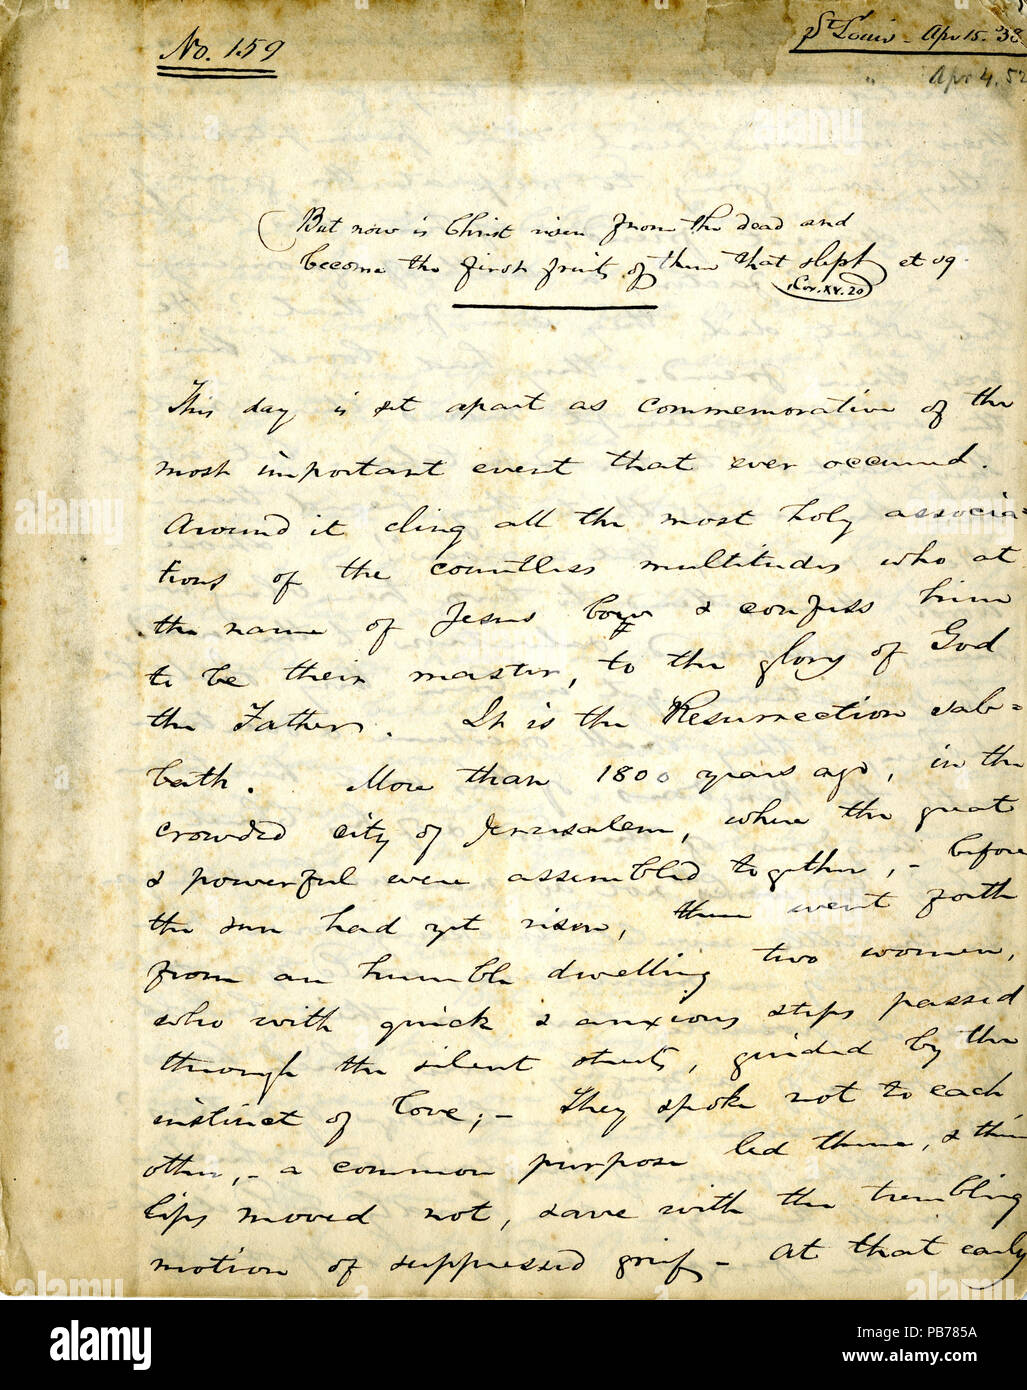 No. 159
St. Louis - Apr 15. '38.
" Apr 4. 52
But now is Christ risen from the dead and
become the first fruits of them that slept et sq.
1 Cor. XV. 20
This day is set apart as commemorative of the
most important event that ever occurred.
Around it cling all the most holy associa=
tions of the countless multitudes who at
the name of Jesus bow & confess him
to be their master, to the glory of God
the Father. It is the Resurrection sab=
bath. More than 1800 years ago, in the
crowded city of Jerusalem, where the great
& powerful were assembled together, - before
the sun had yet risen, there went forth
from an humble dwelling two women,
who with quick & anxious steps passed
through the silent streets, guided by the
instinct of love; - They spoke not to each
other, - a common purpose led them, & their
lips moved not, save with the trembling
motion of suppressed grief - At that early
alamy
Image ID: PB785A
www.alamy.com